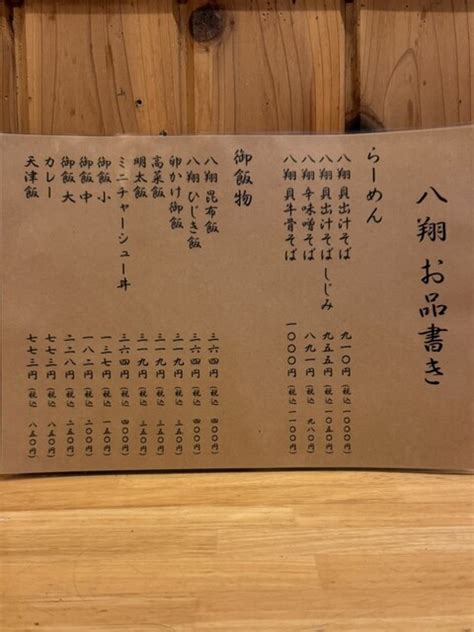 八翔 お品書き
らーめん
八翔貝出汁そば 九一〇円(税込 一〇〇〇円)
八翔貝出汁そばしじみ 九五五円(税込 一〇五〇円)
八翔辛味噌そば 八九一円(税込 九八〇円)
八翔貝牛骨そば 一〇〇〇円(税込 一一〇〇円)
御飯物
八翔昆布飯 三六四円(税込 四〇〇円)
八翔ひじき飯 三六四円(税込 四〇〇円)
卵かけ御飯 三一九円(税込 三五〇円)
高菜飯 三一九円(税込 三五〇円)
明太飯 三一九円(税込 三五〇円)
ミニチャーシュー丼 三六四円(税込 四〇〇円)
御飯 小 一三七円(税込 一五〇円)
御飯 中 一八二円(税込 二〇〇円)
御飯 大 二二八円(税込 二五〇円)
カレー 七七三円(税込 八五〇円)
天津飯 七七三円(税込 八五〇円)